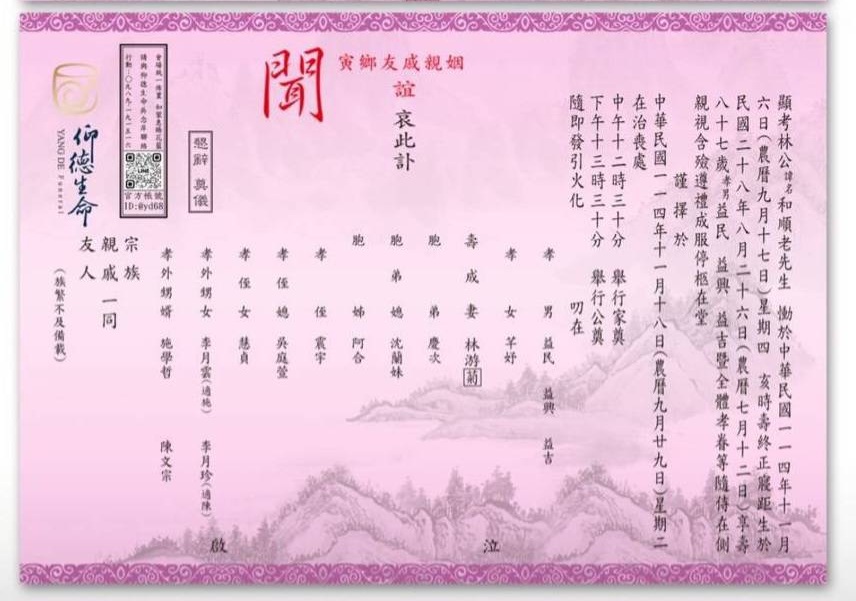 顯考林公諱名和順老先生　慟於中華民國一一四年十一月
六日(農曆九月十七日)星期四　亥時壽終正寢距生於
民國二十八年八月二十六日(農曆七月十二日)享壽
八十七歲孝男益民　益興　益吉暨全體孝眷等隨侍在側
親視含殮遵禮成服停柩在堂
謹擇於
中華民國一一四年十一月十八日(農曆九月廿九日)星期二
在治喪處
中午十二時三十分　舉行家奠
下午十三時三十分　舉行公奠
隨即發引火化　叨在
姻親戚友鄉寅
誼
哀此訃
聞
孝男　益民　益興　益吉
孝女　羊妤
壽成妻　林游菊
胞弟　慶次
胞弟媳　沈蘭妹
胞姊　阿合
孝侄　震宇
孝侄媳　吳庭萱
孝侄女　慧貞
孝外甥女　李月雲(適施)　李月珍(適陳)
孝外甥婿　施學哲　陳文宗
泣
啟
宗族
親戚一同
友人
(族繁不及備載)
懇辭　奠儀
會場統一佈置 如蒙惠賜花籃
請與仰德生命吳念萍聯絡
行動:〇九八九一九一五一六
LINE
官方帳號
ID:@yd68
仰德生命
YANG DE Funeral